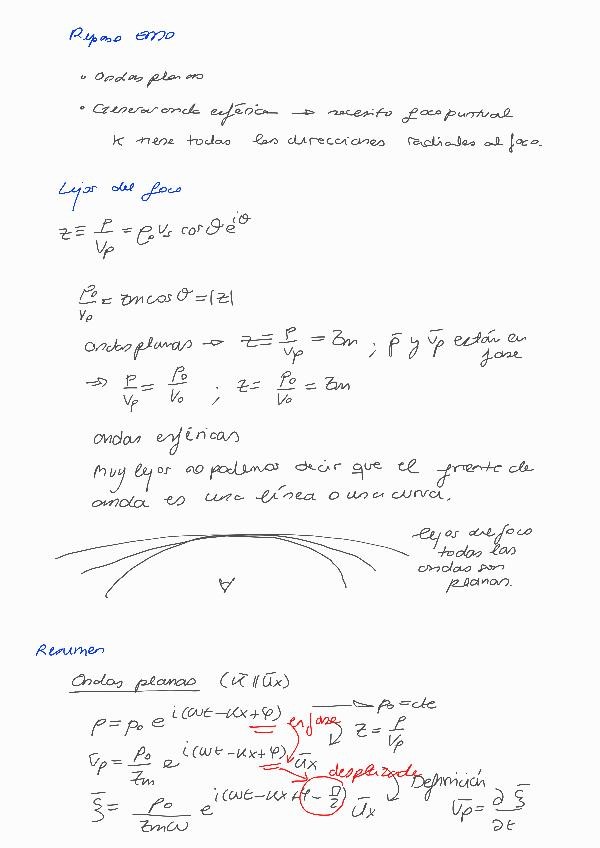 Repaso EMO
• Ondas planas
• Generar onda esférica → necesito foco puntual
K tiene todas las direcciones radiales al foco.
Lejos del foco
z ≡ p/Vp = ρ₀ Vs cos θ e^{iθ}
p₀/Vp = Zm cos θ = |z|
ondas planas → z ≡ p/Vp = Zm ; p̄ y V̄p están en fase
⇒ p/Vp = p₀/V₀ ; z = p₀/V₀ = Zm
ondas esféricas
Muy lejos no podemos decir que el frente de
onda es una línea o una curva.
lejos del foco
todas las
ondas son
planas.
Resumen
Ondas planas (K̄ ∥ ūx)
p = p₀ e^{i(ωt-Kx+φ)} → p₀ = cte
en fase z = p/Vp
V̄p = p₀/Zm e^{i(ωt-Kx+φ)} ūx
desplazada Definición
ξ̄ = p₀/(Zmω) e^{i(ωt-Kx+φ-π/2)} ūx V̄p = ∂ξ̄/∂t